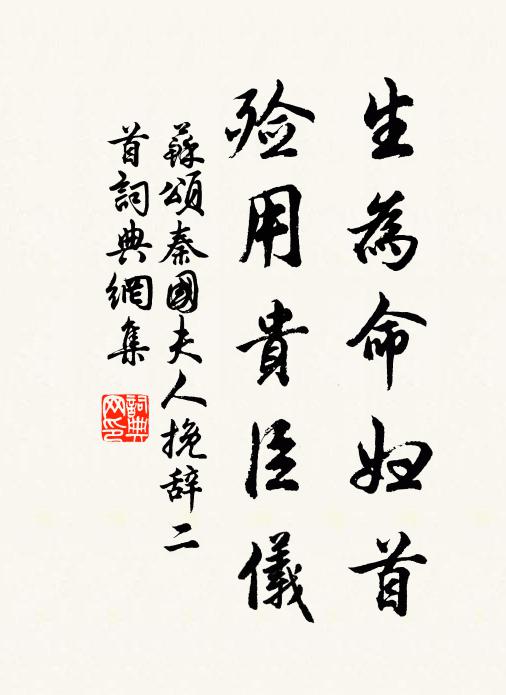 生為命妇首
殮用貴臣儀
蘇頌秦國夫人挽辞二
首詞典網集
詞典
网印